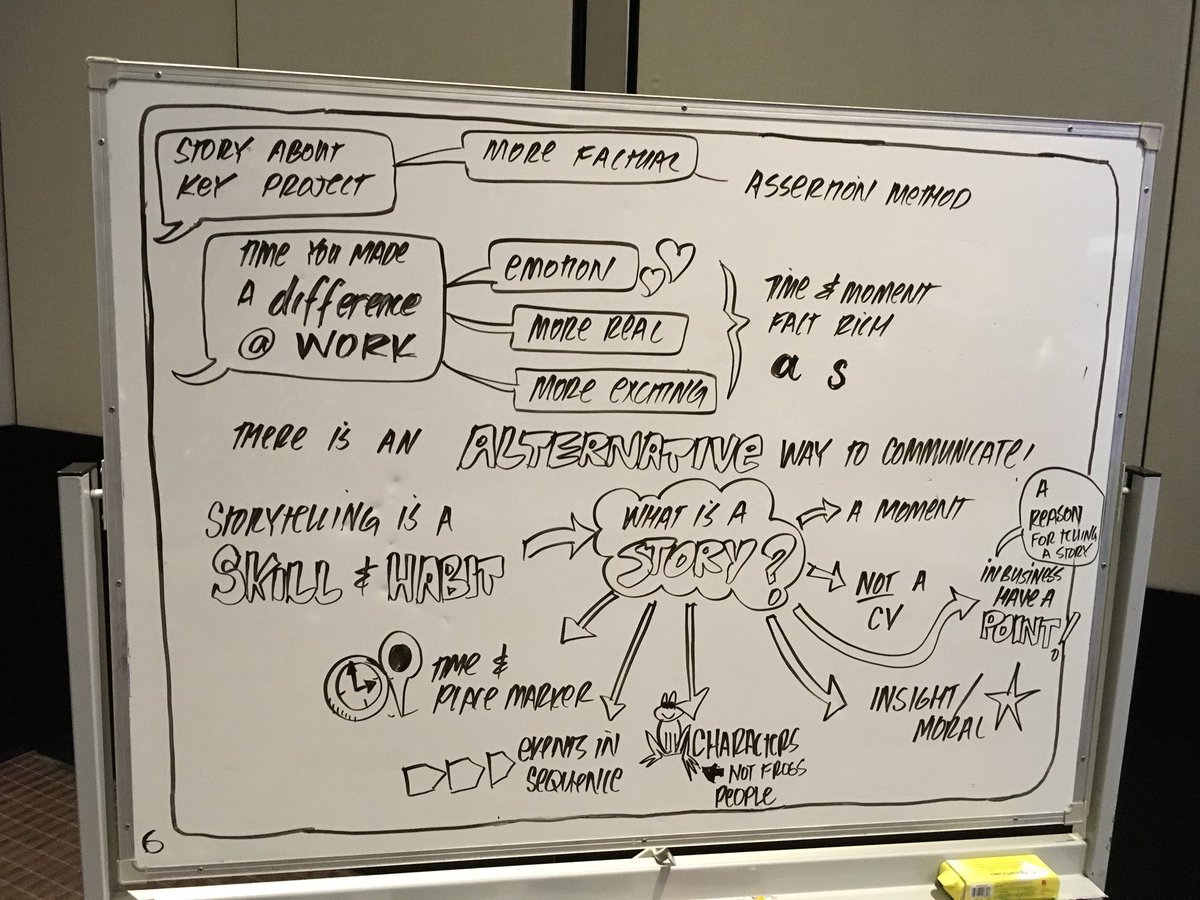 STORY ABOUT
KEY PROJECT
MORE FACTUAL
ASSERTION METHOD
TIME YOU MADE
A difference
@ WORK
EMOTION
MORE REAL
MORE EXCITING
TIME & MOMENT
FACT RICH
a s
THERE IS AN ALTERNATIVE WAY TO COMMUNICATE!
STORYTELLING IS A
SKILL & HABIT
WHAT IS A
STORY?
A MOMENT
NOT A
CV
A
REASON
FOR TELLING
A STORY
IN BUSINESS
HAVE A
POINT!
TIME &
PLACE MARKER
EVENTS IN
SEQUENCE
CHARACTERS
NOT FROGS
PEOPLE
INSIGHT/
MORAL
6